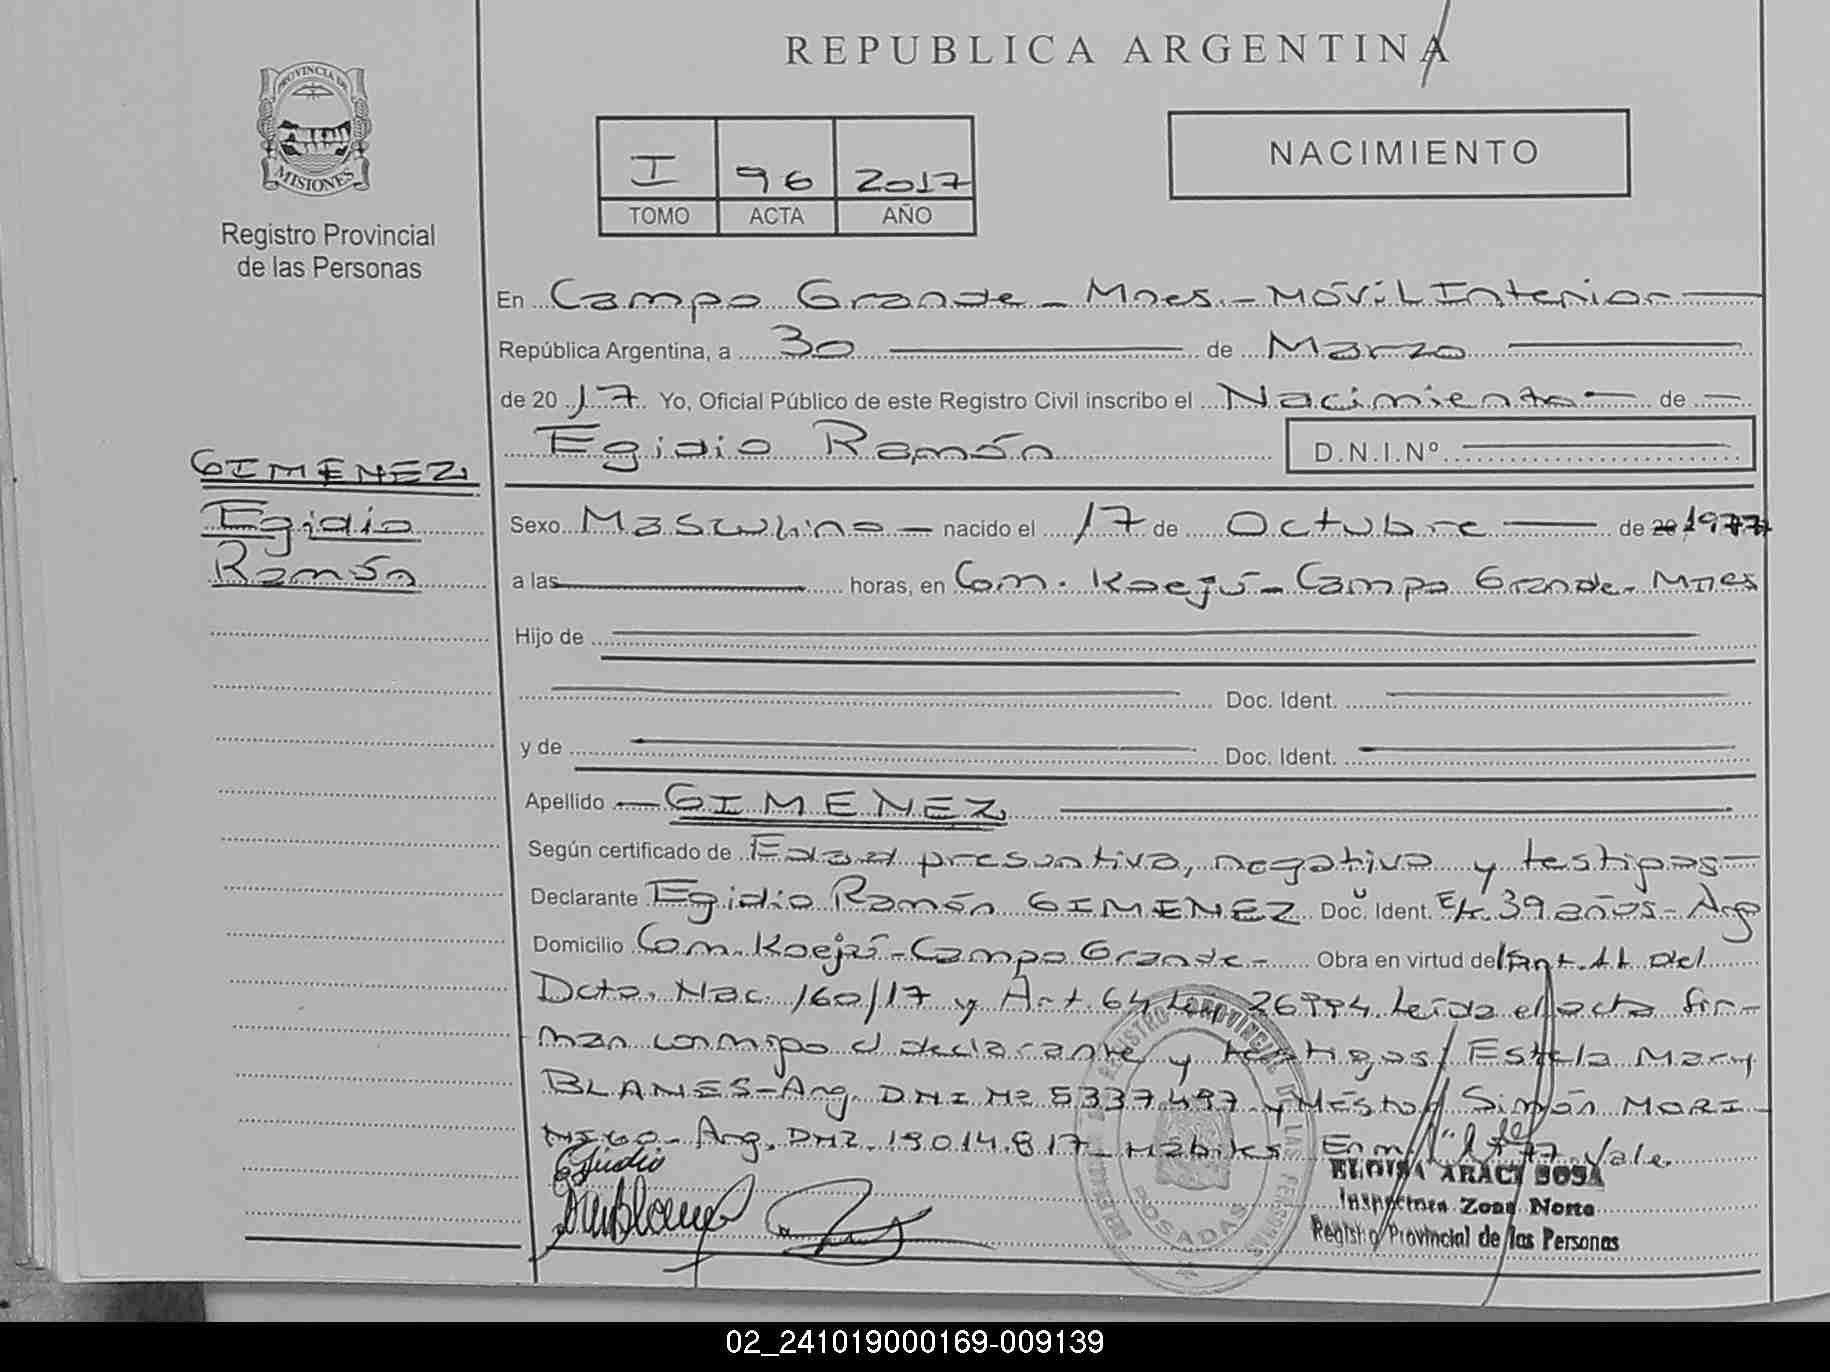 REPUBLICA ARGENTINA
PROVINCIA DE
MISIONES
Registro Provincial
de las Personas
I 96 2017
TOMO ACTA AÑO
NACIMIENTO
En Campo Grande - Mnes. - Móvil Interior
República Argentina, a 30 de Marzo
de 2017 Yo, Oficial Público de este Registro Civil inscribo el Nacimiento de
Egidio Ramón D.N.I.Nº
GIMENEZ
Egidio
Ramón
Sexo Masculino nacido el 17 de Octubre de 20 1977
a las horas, en Com. Koejú - Campo Grande - Mnes
Hijo de
Doc. Ident.
y de Doc. Ident.
Apellido GIMENEZ
Según certificado de Edad presuntiva, negativa y testigos
Declarante Egidio Ramón GIMENEZ Doc. Ident. 39 años - Arg
Domicilio Com. Koejú - Campo Grande - Obra en virtud del Art. 11 del
Dcto. Nac. 160/17 y Art. 64 Ley 26994. Leída el acta fir-
man conmigo el declarante y testigos Estela Mary
BLANES - Arg. DNI Nº 5337497 y Néstor Simón MORI
NIGO - Arg. DNI. 19.014.817 Habiks Enm. 77 Vale
Egidio
ELOISA ARACI SOSA
Inspectora Zona Norte
Registro Provincial de las Personas
REGISTRO PROVINCIAL DE LAS PERSONAS
POSADAS
02_241019000169-009139